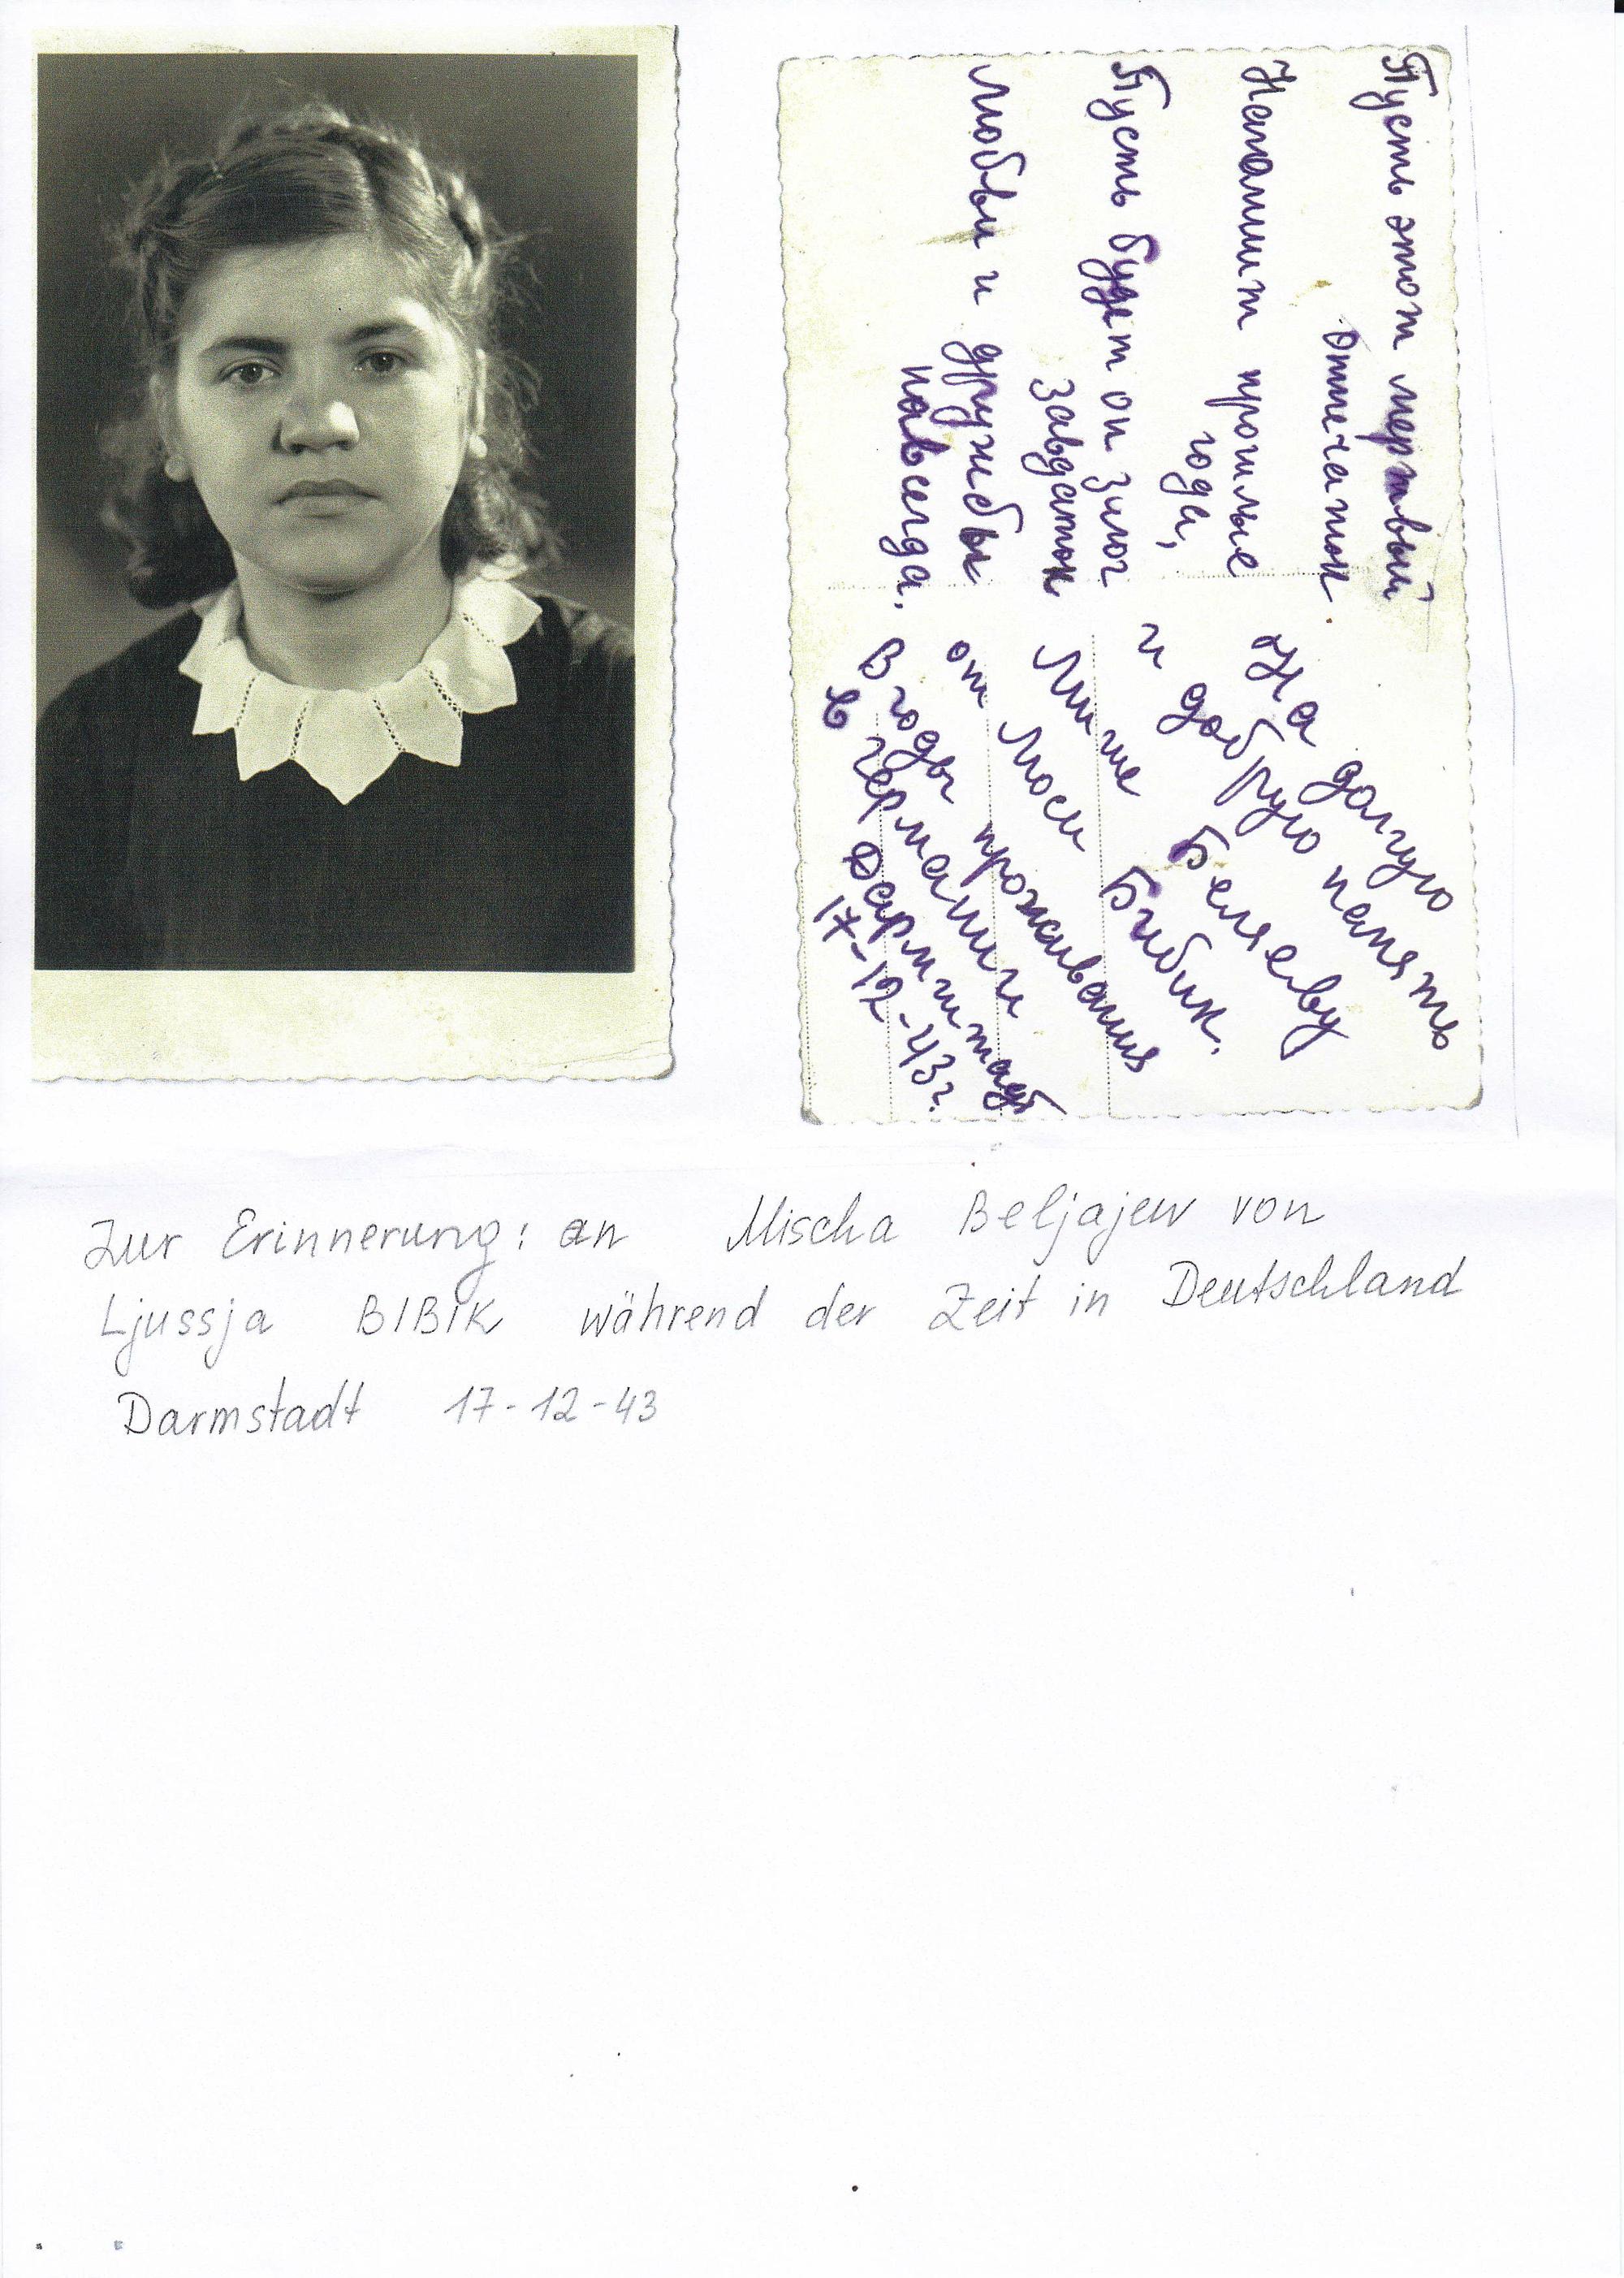 Пусть этот мертвый
отпечаток
Напомнит прошлые
года,
Пусть будет он злог
завдаток
Любви и дружбы
навсегда,
На долгую
и добрую память
Мише Беляеву
от Люси Бибик.
В годы проживания
в Германии
Дармштадт
17-12-43г.
Zur Erinnerung: an Mischa Beljajew von
Ljussja BIBIK während der Zeit in Deutschland
Darmstadt 17-12-43